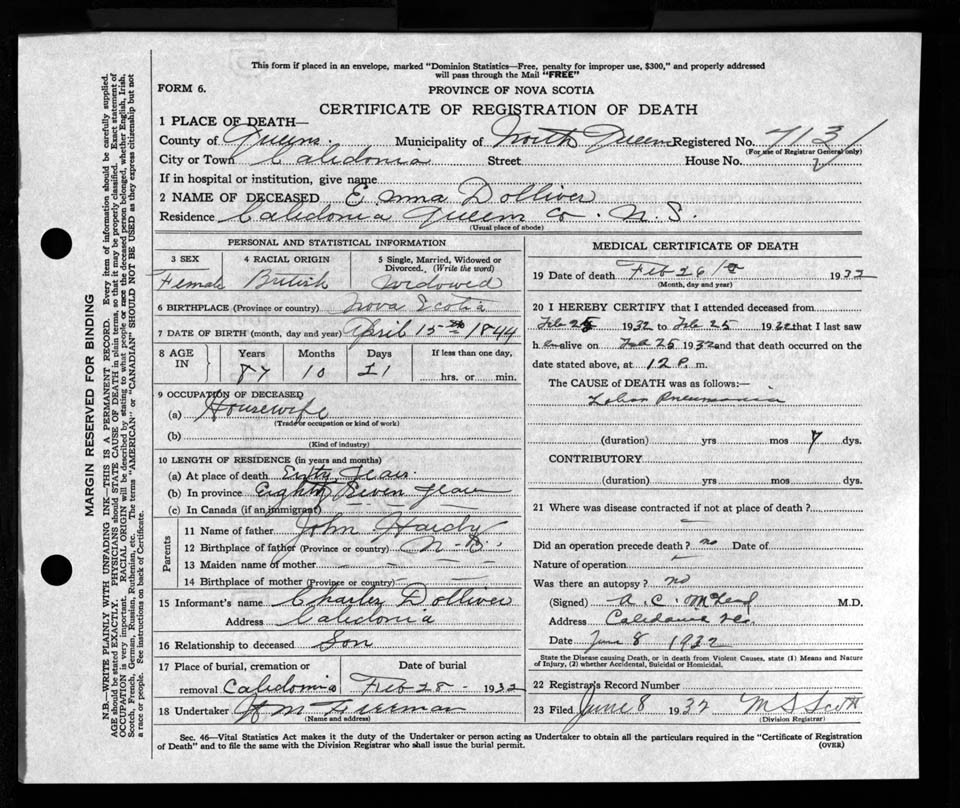 This form if placed in an envelope, marked "Dominion Statistics—Free, penalty for improper use, $300," and properly addressed
will pass through the Mail "FREE"
FORM 6.
PROVINCE OF NOVA SCOTIA
CERTIFICATE OF REGISTRATION OF DEATH
1 PLACE OF DEATH—
County of Queens Municipality of North Queens Registered No. 713
(For use of Registrar General only)
City or Town Caledonia Street House No.
If in hospital or institution, give name
2 NAME OF DECEASED Emma Dolliver
Residence Caledonia Queens Co. N.S.
(Usual place of abode)
PERSONAL AND STATISTICAL INFORMATION
3 SEX 4 RACIAL ORIGIN 5 Single, Married, Widowed or
Divorced. (Write the word)
Female British Widowed
6 BIRTHPLACE (Province or country) Nova Scotia
7 DATE OF BIRTH (month, day and year) April 15th 1844
8 AGE IN Years Months Days If less than one day,
87 10 11 hrs. or min.
9 OCCUPATION OF DECEASED
(a) Housewife
(Trade or occupation or kind of work)
(b)
(Kind of industry)
10 LENGTH OF RESIDENCE (in years and months)
(a) At place of death Years
(b) In province Eighty Seven years
(c) In Canada (if an immigrant)
Parents
11 Name of father John Hardy
12 Birthplace of father (Province or country) N-S.
13 Maiden name of mother — — —
14 Birthplace of mother (Province or country) — — —
15 Informant's name Charles Dolliver
Address Caledonia
16 Relationship to deceased Son
17 Place of burial, cremation or Date of burial
removal Caledonia Feb 28 - 1932
18 Undertaker
(Name and address)
MEDICAL CERTIFICATE OF DEATH
19 Date of death Feb 26 1932
(Month, day and year)
20 I HEREBY CERTIFY that I attended deceased from
Feb 25 1932 to Feb 25 1932 that I last saw
h er alive on Feb 25 1932 and that death occurred on the
date stated above, at 12 P. m.
The CAUSE OF DEATH was as follows:—
Lobar Pneumonia
(duration) yrs mos 7 dys.
CONTRIBUTORY
(duration) yrs mos dys.
21 Where was disease contracted if not at place of death?
Did an operation precede death? no Date of
Nature of operation
Was there an autopsy? no
(Signed) A. C. McLeod M.D.
Address Caledonia
Date June 8 1932
State the Disease causing Death, or in death from Violent Causes, state (1) Means and Nature
of Injury, (2) whether Accidental, Suicidal or Homicidal.
22 Registrar's Record Number
23 Filed June 8 1932 M S Scott
(Division Registrar)
Sec. 46—Vital Statistics Act makes it the duty of the Undertaker or person acting as Undertaker to obtain all the particulars required in the "Certificate of Registration
of Death" and to file the same with the Division Registrar who shall issue the burial permit. (OVER)
MARGIN RESERVED FOR BINDING
N.B.—WRITE PLAINLY WITH UNFADING INK—THIS IS A PERMANENT RECORD. Every item of information should be carefully supplied.
AGE should be stated EXACTLY. PHYSICIANS should STATE CAUSE OF DEATH in plain terms, so that it may be properly classified. Exact statement of
OCCUPATION is very important. RACIAL ORIGIN will be described by stating to what people or race the deceased person belonged, whether English, Irish,
Scotch, French, German, Russian, Ruthenian, etc. The terms "AMERICAN" or "CANADIAN" SHOULD NOT BE USED as they express citizenship but not
a race or people. See instructions on back of Certificate.